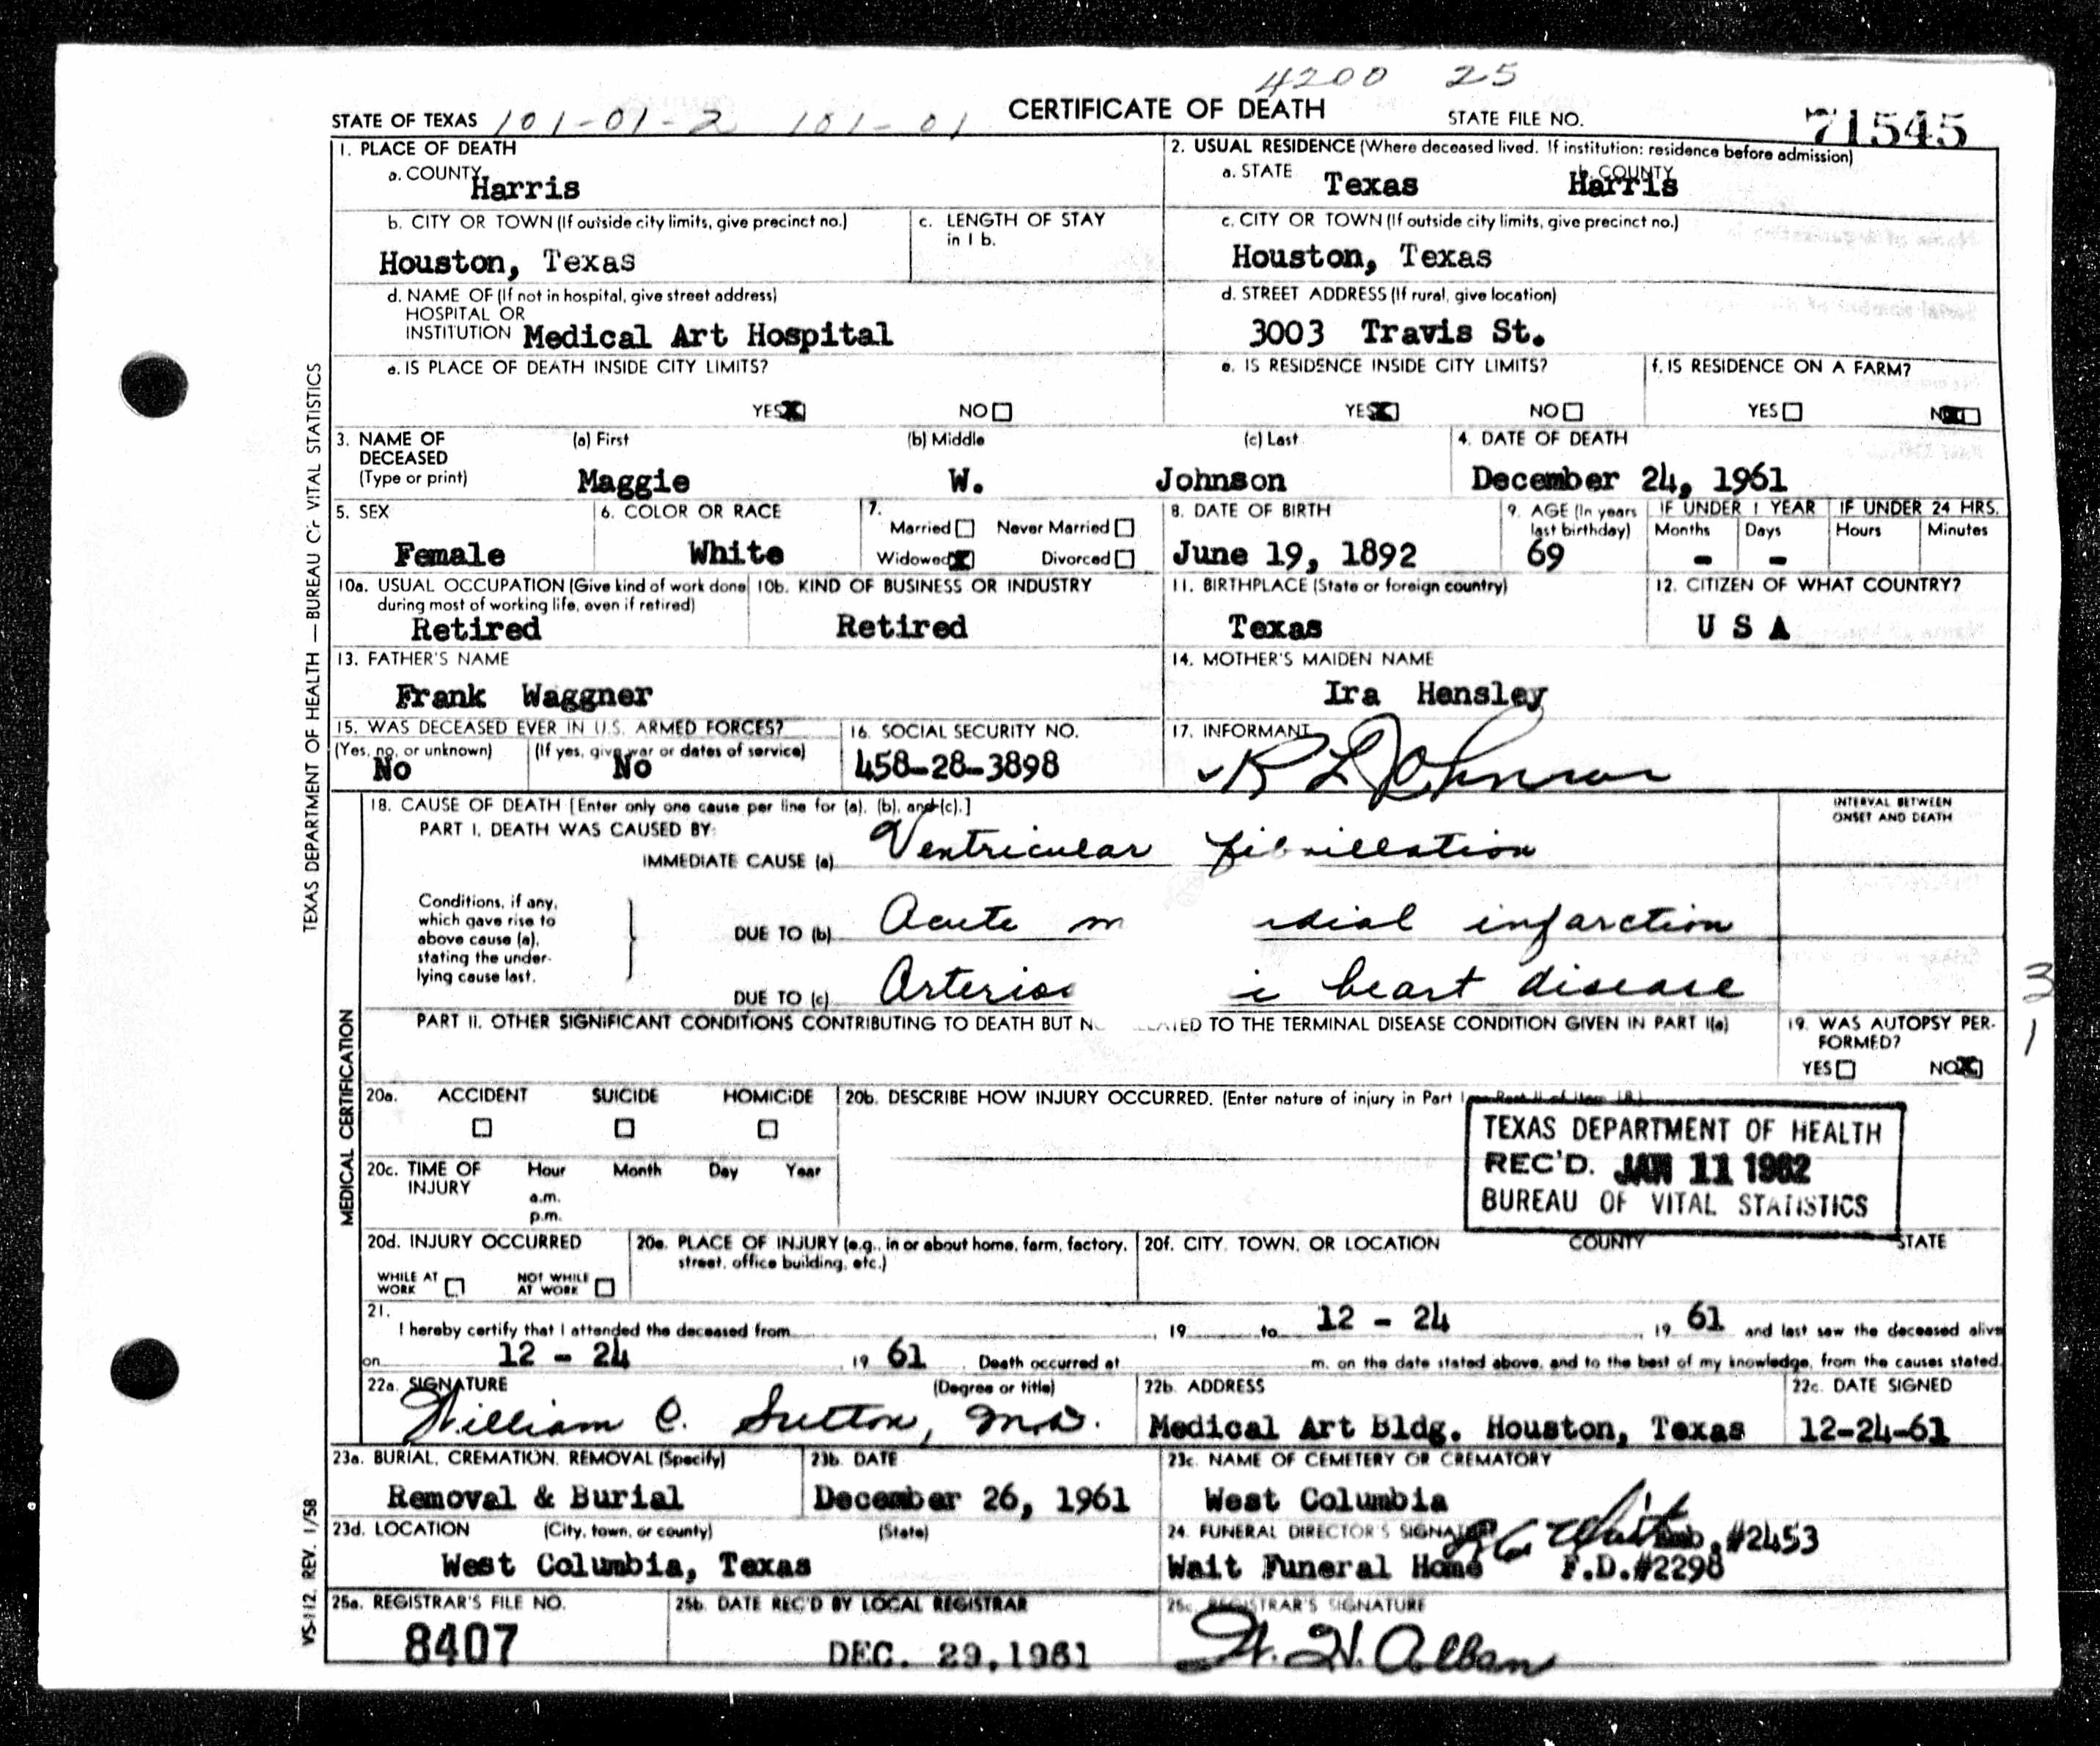 4200 25
STATE OF TEXAS 101-01-2 101-01 CERTIFICATE OF DEATH STATE FILE NO. 71545
1. PLACE OF DEATH
a. COUNTY Harris
2. USUAL RESIDENCE (Where deceased lived. If institution: residence before admission)
a. STATE Texas b. COUNTY Harris
b. CITY OR TOWN (If outside city limits, give precinct no.)
Houston, Texas
c. LENGTH OF STAY
in 1 b.
c. CITY OR TOWN (If outside city limits, give precinct no.)
Houston, Texas
d. NAME OF (If not in hospital, give street address)
HOSPITAL OR
INSTITUTION Medical Art Hospital
d. STREET ADDRESS (If rural, give location)
3003 Travis St.
e. IS PLACE OF DEATH INSIDE CITY LIMITS?
YES NO
e. IS RESIDENCE INSIDE CITY LIMITS?
YES NO
f. IS RESIDENCE ON A FARM?
YES NO
3. NAME OF
DECEASED
(Type or print)
(a) First (b) Middle (c) Last
Maggie W. Johnson
4. DATE OF DEATH
December 24, 1961
5. SEX
Female
6. COLOR OR RACE
White
7.
Married Never Married
Widowed Divorced
8. DATE OF BIRTH
June 19, 1892
9. AGE (In years
last birthday)
69
IF UNDER 1 YEAR
Months Days
- -
IF UNDER 24 HRS.
Hours Minutes
10a. USUAL OCCUPATION (Give kind of work done
during most of working life, even if retired)
Retired
10b. KIND OF BUSINESS OR INDUSTRY
Retired
11. BIRTHPLACE (State or foreign country)
Texas
12. CITIZEN OF WHAT COUNTRY?
U S A
13. FATHER'S NAME
Frank Waggner
14. MOTHER'S MAIDEN NAME
Ira Hensley
15. WAS DECEASED EVER IN U.S. ARMED FORCES?
(Yes, no, or unknown) (If yes, give war or dates of service)
No No
16. SOCIAL SECURITY NO.
458-28-3898
17. INFORMANT
R L Johnson
18. CAUSE OF DEATH [Enter only one cause per line for (a), (b), and (c).]
PART I. DEATH WAS CAUSED BY:
IMMEDIATE CAUSE (a) Ventricular fibrillation
INTERVAL BETWEEN
ONSET AND DEATH
Conditions, if any,
which gave rise to
above cause (a),
stating the under-
lying cause last.
DUE TO (b) Acute m dial infarction
DUE TO (c) Arterios heart disease
3
1
PART II. OTHER SIGNIFICANT CONDITIONS CONTRIBUTING TO DEATH BUT N LATED TO THE TERMINAL DISEASE CONDITION GIVEN IN PART I(a)
19. WAS AUTOPSY PER-
FORMED?
YES NO
20a. ACCIDENT SUICIDE HOMICIDE
20b. DESCRIBE HOW INJURY OCCURRED. (Enter nature of injury in Part I or Part II of Item 18.)
TEXAS DEPARTMENT OF HEALTH
REC'D. JAN 11 1962
BUREAU OF VITAL STATISTICS
20c. TIME OF
INJURY
Hour Month Day Year
a.m.
p.m.
20d. INJURY OCCURRED
WHILE AT
WORK
NOT WHILE
AT WORK
20e. PLACE OF INJURY (e.g., in or about home, farm, factory,
street, office building, etc.)
20f. CITY, TOWN, OR LOCATION COUNTY STATE
21.
I hereby certify that I attended the deceased from , 19 to 12 - 24 , 19 61 and last saw the deceased alive
on 12 - 24 , 19 61 . Death occurred at m. on the date stated above, and to the best of my knowledge, from the causes stated.
22a. SIGNATURE (Degree or title)
William C. Sutton, M.D.
22b. ADDRESS
Medical Art Bldg. Houston, Texas
22c. DATE SIGNED
12-24-61
23a. BURIAL, CREMATION, REMOVAL (Specify)
Removal & Burial
23b. DATE
December 26, 1961
23c. NAME OF CEMETERY OR CREMATORY
West Columbia
23d. LOCATION (City, town, or county) (State)
West Columbia, Texas
24. FUNERAL DIRECTOR'S SIGNATURE
Emb. #2453
Wait Funeral Home F.D.#2298
25a. REGISTRAR'S FILE NO.
8407
25b. DATE REC'D BY LOCAL REGISTRAR
DEC. 29, 1961
25c. REGISTRAR'S SIGNATURE
W. H. Alban
TEXAS DEPARTMENT OF HEALTH — BUREAU OF VITAL STATISTICS
MEDICAL CERTIFICATION
VS-112 REV. 1/58